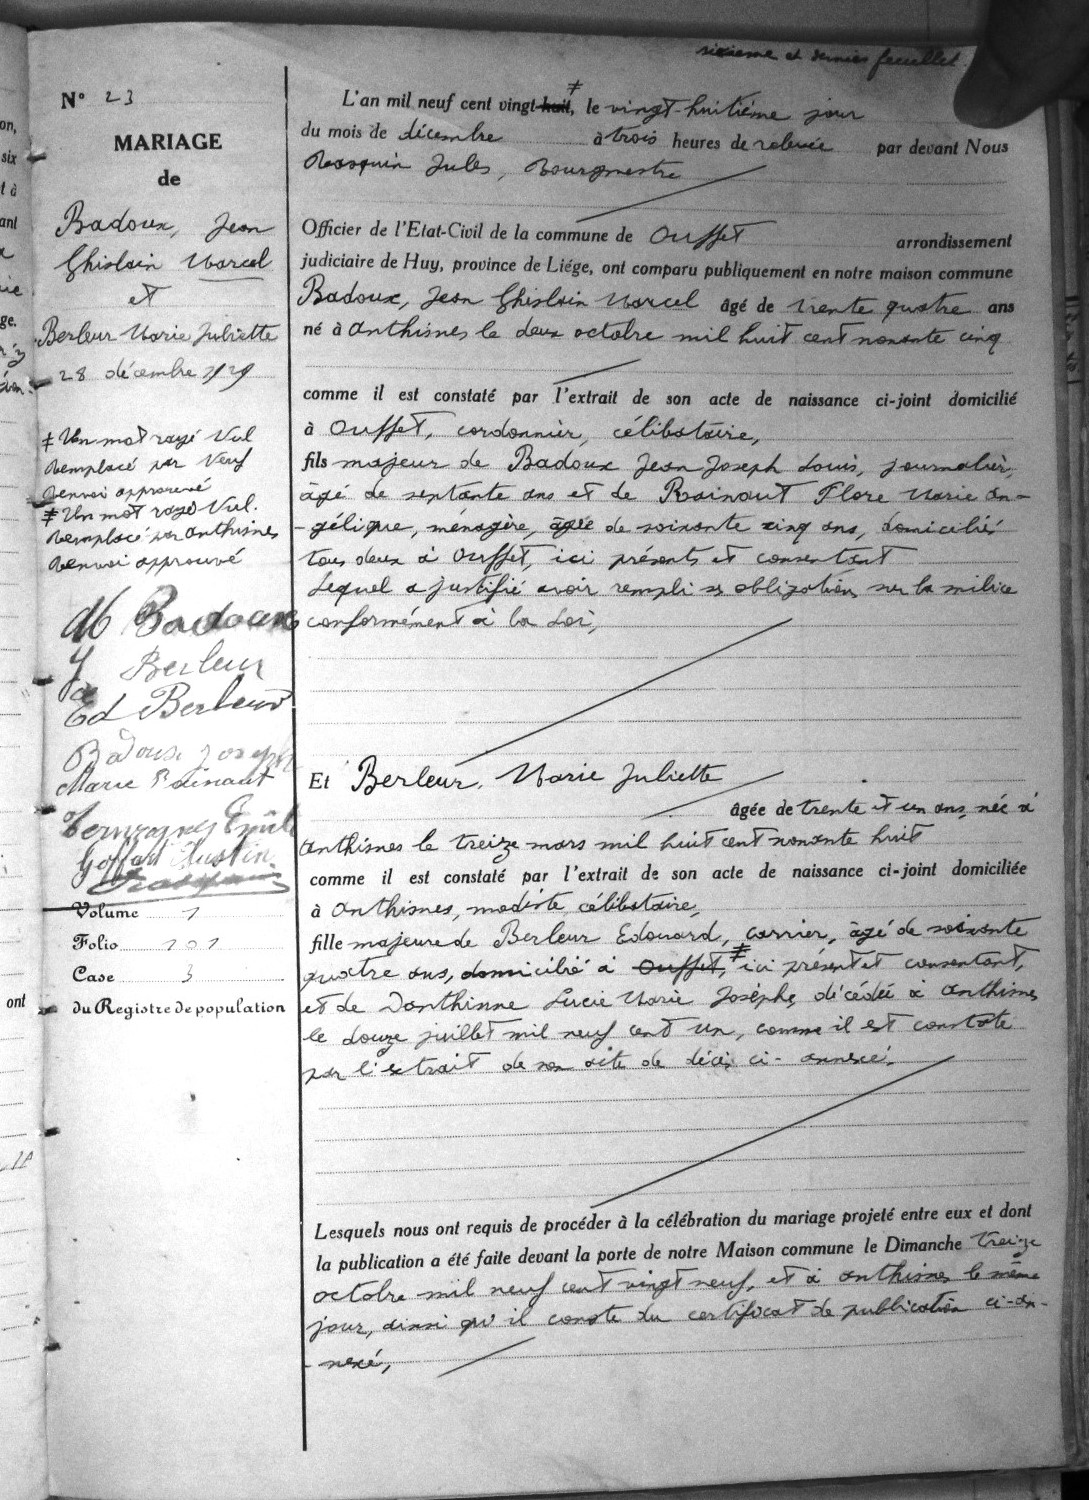 sixième et dernier feuillet
N° 23
MARIAGE
de
Badoux, Jean
Ghislain Marcel
et
Berleur Marie Juliette
28 décembre 1929
‡ Un mot rayé Nul
Remplacé par Neuf
Renvoi approuvé
‡ Un mot rayé Nul.
Remplacé par Anthisnes
Renvoi approuvé
M Badoux
J Berleur
Ed Berleur
Badoux Joseph
Marie Rainaut
Emile
Goffart Justin
Volume 1
Folio 101
Case 3
du Registre de population
L'an mil neuf cent vingt-huit, ‡ le vingt-huitième jour
du mois de décembre à trois heures de relevée par devant Nous
Rasquin Jules, Bourgmestre
Officier de l'Etat-Civil de la commune de Ouffet arrondissement
judiciaire de Huy, province de Liége, ont comparu publiquement en notre maison commune
Badoux, Jean Ghislain Marcel âgé de trente quatre ans
né à Anthisnes le deux octobre mil huit cent nonante cinq
comme il est constaté par l'extrait de son acte de naissance ci-joint domicilié
à Ouffet, cordonnier, célibataire,
fils majeur de Badoux Jean Joseph Louis, journalier,
âgé de septante ans et de Rainaut Flore Marie An-
-gélique, ménagère, âgée de soixante cinq ans, domiciliés
tous deux à Ouffet, ici présents et consentant
Lequel a justifié avoir rempli ses obligations sur la milice
conformément à la Loi,
Et Berleur, Marie Juliette
âgée de trente et un ans, née à
Anthisnes le treize mars mil huit cent nonante huit
comme il est constaté par l'extrait de son acte de naissance ci-joint domiciliée
à Anthisnes, modiste célibataire,
fille majeure de Berleur Edouard, carrier, âgé de soixante
quatre ans, domicilié à Ouffet, ‡ ici présent et consentant,
et de Danthinne Lucie Marie Josèphe, décédée à Anthisnes
le douze juillet mil neuf cent un, comme il est constaté
par l'extrait de son acte de décès ci-annexé,
Lesquels nous ont requis de procéder à la célébration du mariage projeté entre eux et dont
la publication a été faite devant la porte de notre Maison commune le Dimanche treize
octobre mil neuf cent vingt neuf, et à Anthisnes le même
jour, ainsi qu'il conste du certificat de publication ci-an-
-nexé,